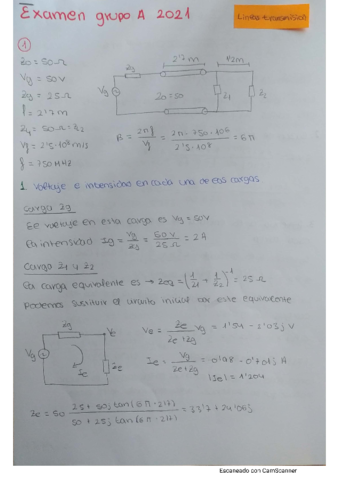 Examen grupo A 2021
Lineas transmision
1
Zo = 50 Ω
Vg = 50 V
Zg = 25 Ω
l = 2'7 m
Z1 = 50 Ω = Z2
Vf = 2'5·10⁸ m/s
f = 750 MHz
Zg
2'7 m
Vg
Zo = 50
Z1
Z2
β = 2πf / Vf = 2π · 750 · 10⁶ / 2'5 · 10⁸ = 6π
1. Voltaje e intensidad en cada una de las cargas
Carga Zg
El voltaje en esta carga es Vg = 50V
La intensidad Ig = Vg / Zg = 50 V / 25 Ω = 2A
Carga Z1 y Z2
La carga equivalente es → Zeq = (1/Z1 + 1/Z2)⁻¹ = 25 Ω
Podemos sustituir el circuito inicial por este equivalente
Zg
Ve
Vg
Ie
Ze
Ve = Ze / Ze + Zg · Vg
Ie = Vg / Ze + Zg
|Ie| = 1'204
Ze = 50 · 25 + 50j tan(6π · 2'7) / 50 + 25j tan(6π · 2'7) = 33'7 + 24'06j
Escaneado con CamScanner